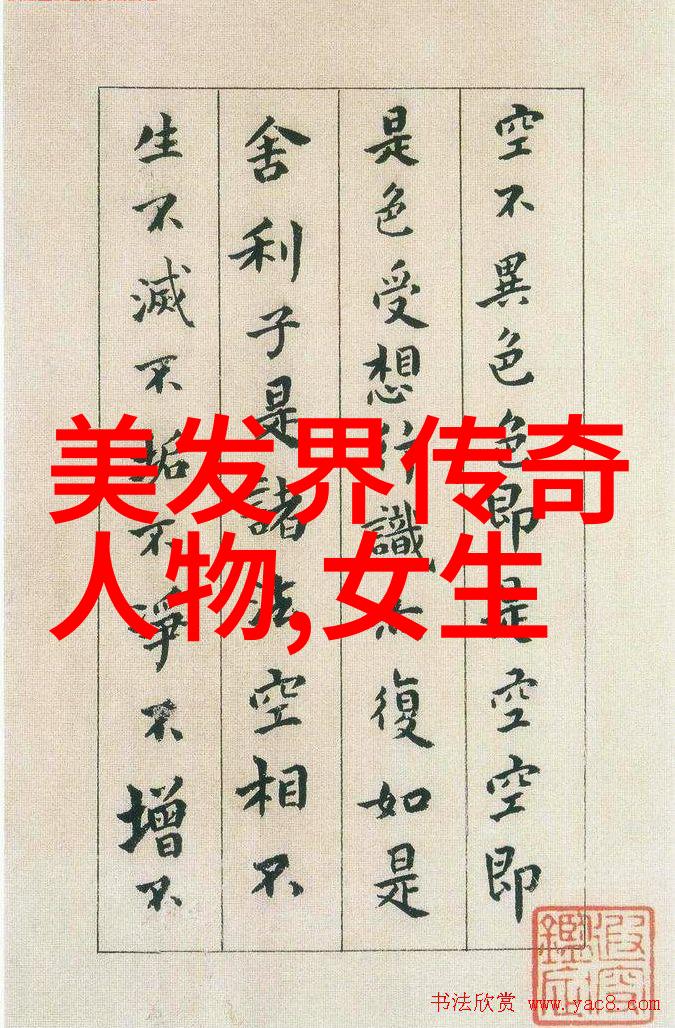 空不異色色即是空空即
是色受想行識亦復如是
舍利子是諸法空相不
生不滅不垢不淨不增不
美发界传奇
人物,女生
书法欣赏 www.yac8.com